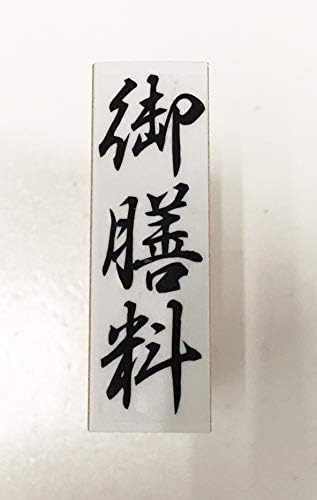 御膳料